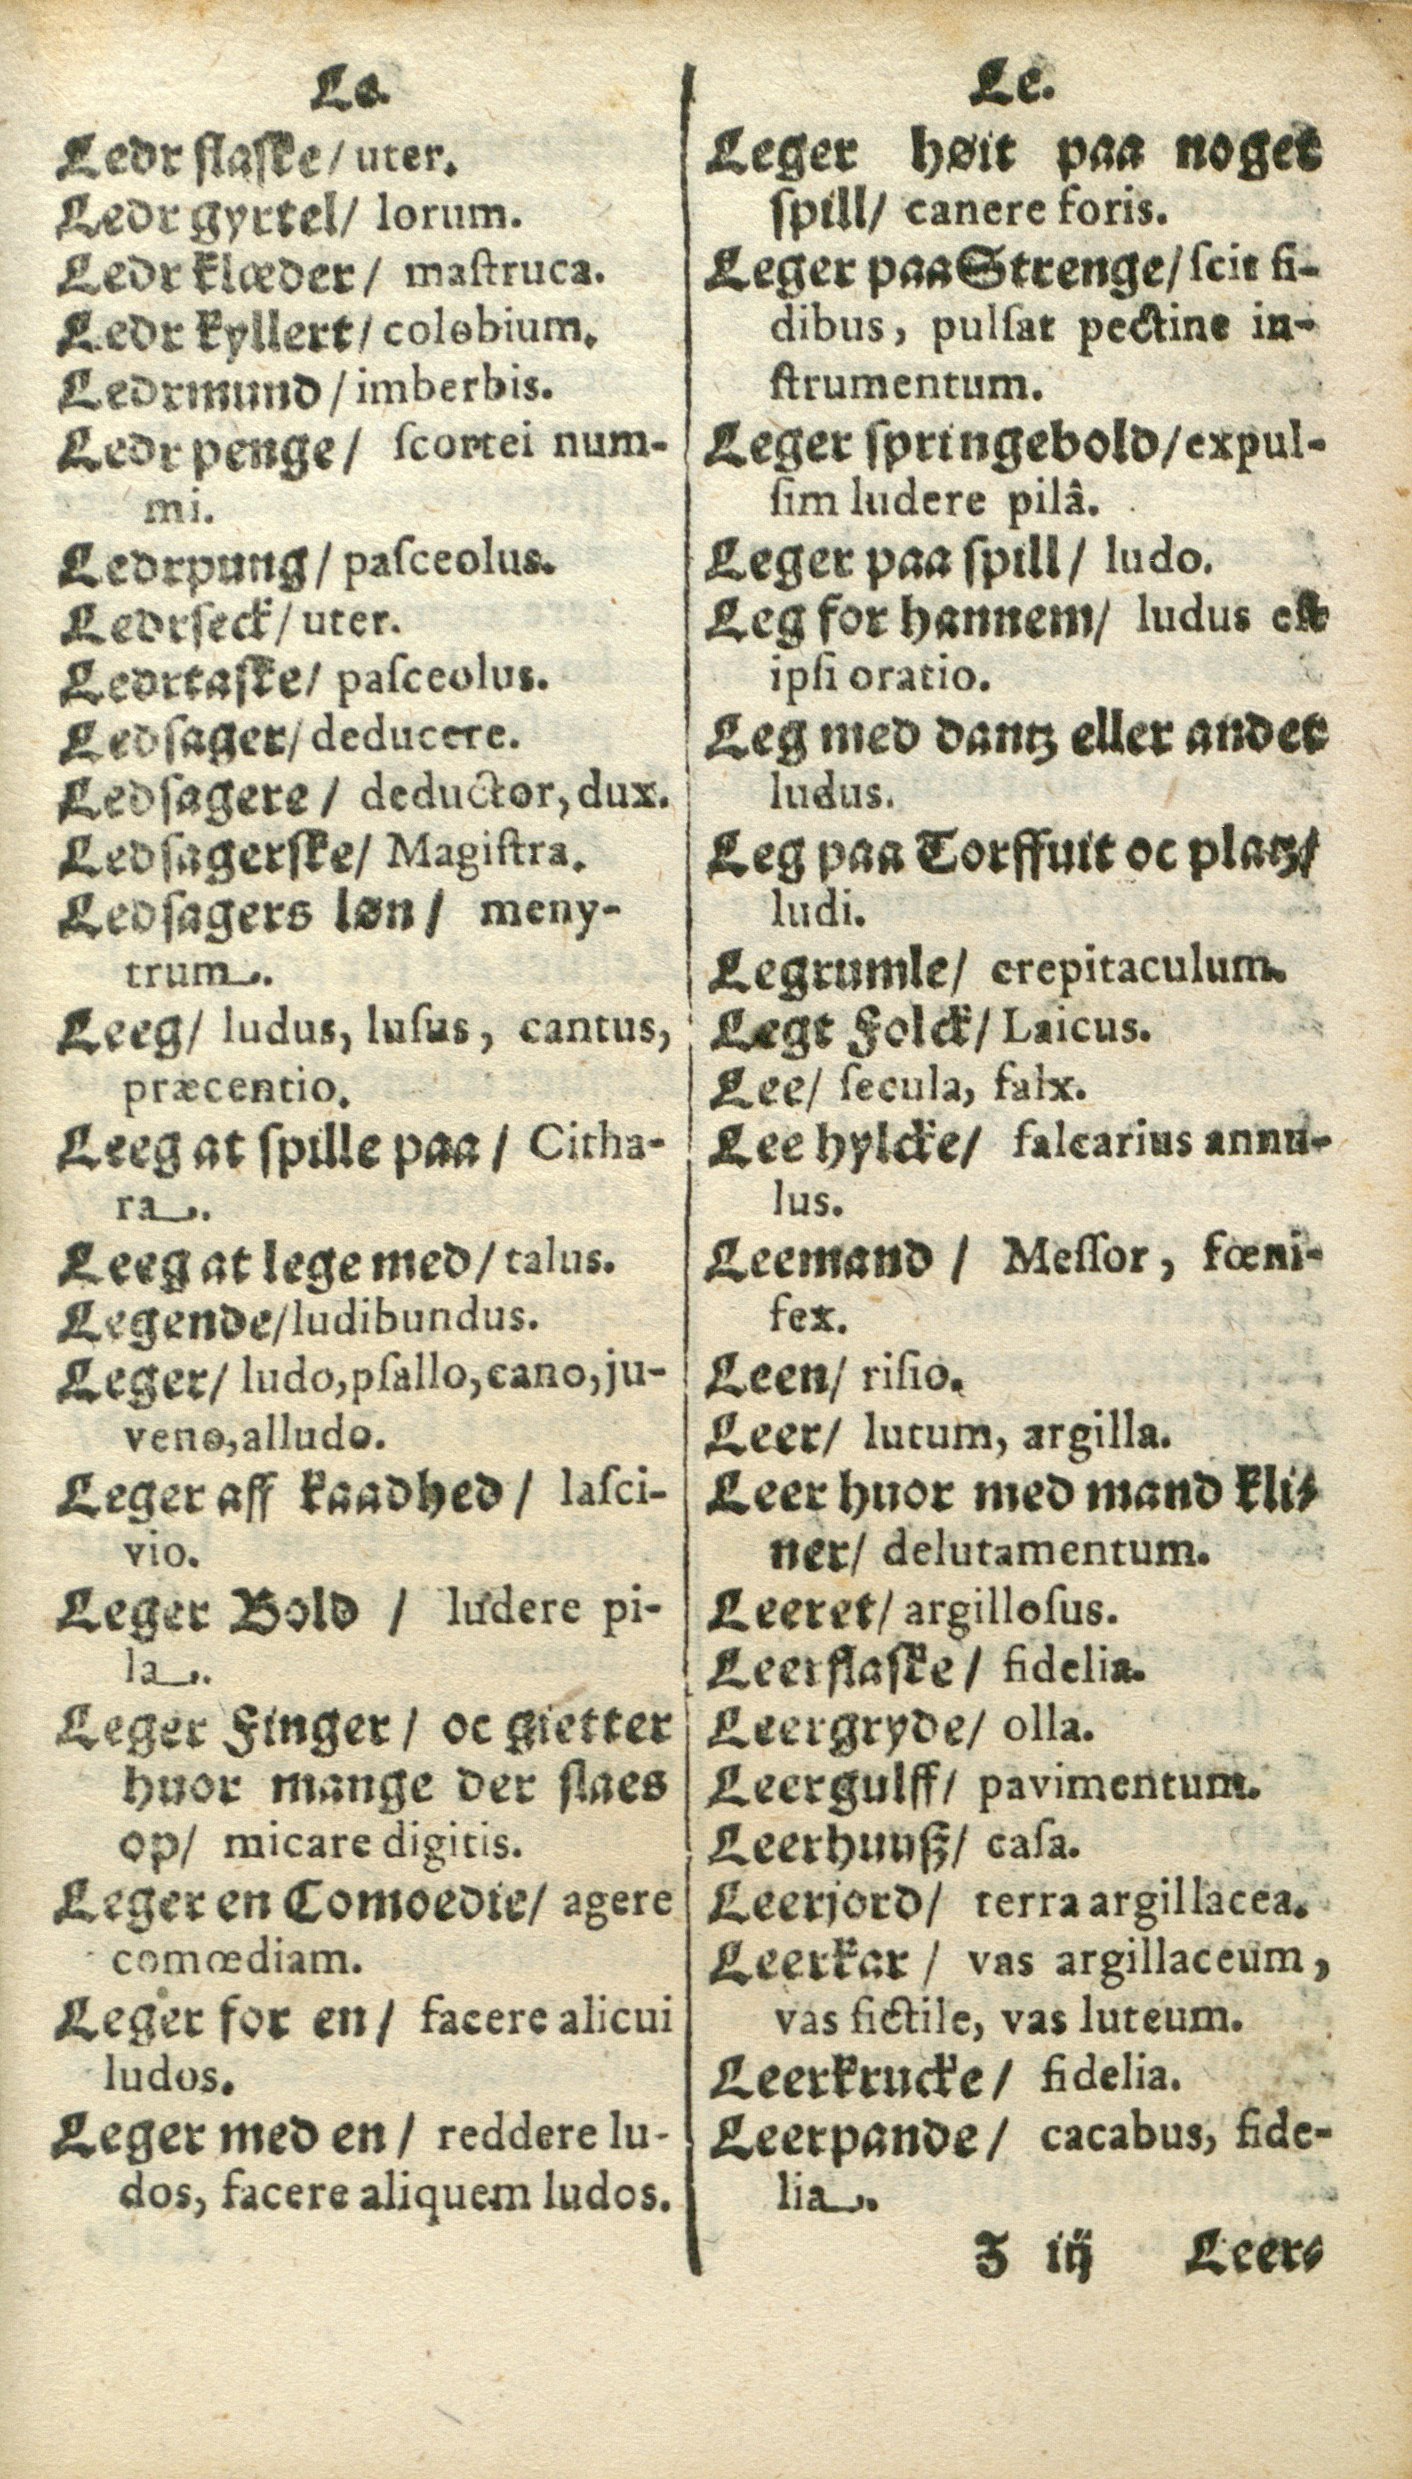 Le.
Ledr flaſke/ uter.
Ledr gyrtel/ lorum.
Ledr klæder/ maſtruca.
Ledr kyllert/ colobium.
Ledrmund/ imberbis.
Ledr penge/ ſcortei num-
mi.
Ledrpung/ paſceolus.
Ledrſeck/ uter.
Ledrtaſke/ paſceolus.
Ledſager/ deducere.
Ledſagere/ deductor, dux.
Ledſagerſke/ Magiſtra.
Ledſagers løn/ meny-
trum.
Leeg/ ludus, luſus, cantus,
præcentio.
Leeg at ſpille paa/ Citha-
ra.
Leeg at lege med/ talus.
Legende/ ludibundus.
Leger/ ludo, pſallo, cano, ju-
veno, alludo.
Leger aff kaadhed/ laſci-
vio.
Leger Bold/ ludere pi-
la.
Leger Finger/ oc gietter
huor mange der ſlaes
op/ micare digitis.
Leger en Comoedie/ agere
comœdiam.
Leger for en/ facere alicui
ludos.
Leger med en/ reddere lu-
dos, facere aliquem ludos.
Le.
Leger høit paa noget
ſpill/ canere foris.
Leger paa Strenge/ ſcit fi-
dibus, pulſat pectine in-
ſtrumentum.
Leger ſpringebold/ expul-
ſim ludere pilâ.
Leger paa ſpill/ ludo.
Leg for hannem/ ludus eſt
ipſi oratio.
Leg med dantz eller andet
ludus.
Leg paa Torffuit oc platz/
ludi.
Legrumle/ crepitaculum.
Legt Folck/ Laicus.
Lee/ ſecula, falx.
Lee hylcke/ falcarius annu-
lus.
Leemand/ Meſſor, fœni-
fex.
Leen/ riſio.
Leer/ lutum, argilla.
Leer huor med mand kli-
ner/ delutamentum.
Leeret/ argilloſus.
Leerflaſke/ fidelia.
Leergryde/ olla.
Leergulff/ pavimentum.
Leerhuuſz/ caſa.
Leerjord/ terra argillacea.
Leerkar/ vas argillaceum,
vas fictile, vas luteum.
Leerkrucke/ fidelia.
Leerpande/ cacabus, fide-
lia.
Z iij Leer-